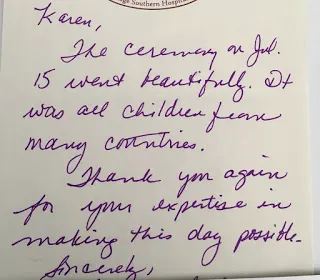 Southern Hospital
Karen,
The ceremony on Jul.
15 went beautifully. It
was all children from
many countries.
Thank you again
for your expertise in
making this day possible.
Sincerely,